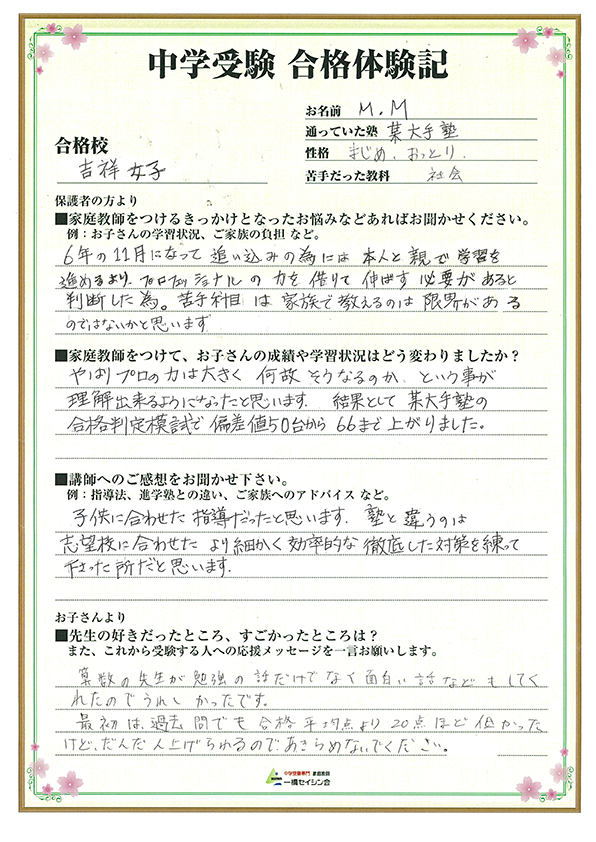 中学受験 合格体験記
お名前 M.M
通っていた塾 某大手塾
合格校
性格 まじめ、おっとり.
吉祥女子
苦手だった教科 社会
保護者の方より
■家庭教師をつけるきっかけとなったお悩みなどあればお聞かせください。
例：お子さんの学習状況、ご家族の負担 など。
6年の11月になって 追い込みの為には 本人と親で学習を
進めるより、プロフェッショナルの 力を 借りて 伸ばす 必要があると
判断した為。苦手科目 は 家族で教えるのは 限界がある
のではないかと思います
■家庭教師をつけて、お子さんの成績や学習状況はどう変わりましたか？
やはりプロの力は大きく 何故 そうなるのか、という事が
理解出来るようになったと思います. 結果として 某大手塾の
合格判定模試で 偏差値50台から 66まで上がりました。
■講師へのご感想をお聞かせ下さい。
例：指導法、進学塾との違い、ご家族へのアドバイス など。
子供に合わせた 指導だったと思います. 塾と違うのは
志望校に合わせた より細かく 効率的な 徹底した対策を練って
下さった所だと思います.
お子さんより
■先生の好きだったところ、すごかったところは？
また、これから受験する人への応援メッセージを一言お願いします。
算数の先生が 勉強の話だけでなく 面白い話なども してく
れたのでうれしかったです。
最初は、過去問でも 合格平均点より 20点ほど 低かった
けど、だんだん上げられるので、あきらめないでください。
中学受験専門 家庭教師
一橋セイシン会